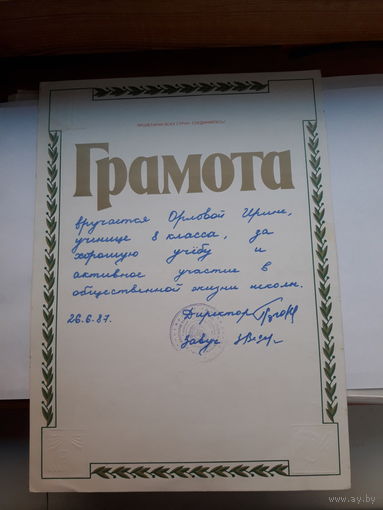 ПРОЛЕТАРИИ ВСЕХ СТРАН, СОЕДИНЯЙТЕСЬ!
Грамота
вручается Орловой Ирине,
ученице 8 класса, за
хорошую учёбу и
активное участие в
общественной жизни школы.
26.6.87. Директор
Завуч
www.ay.by